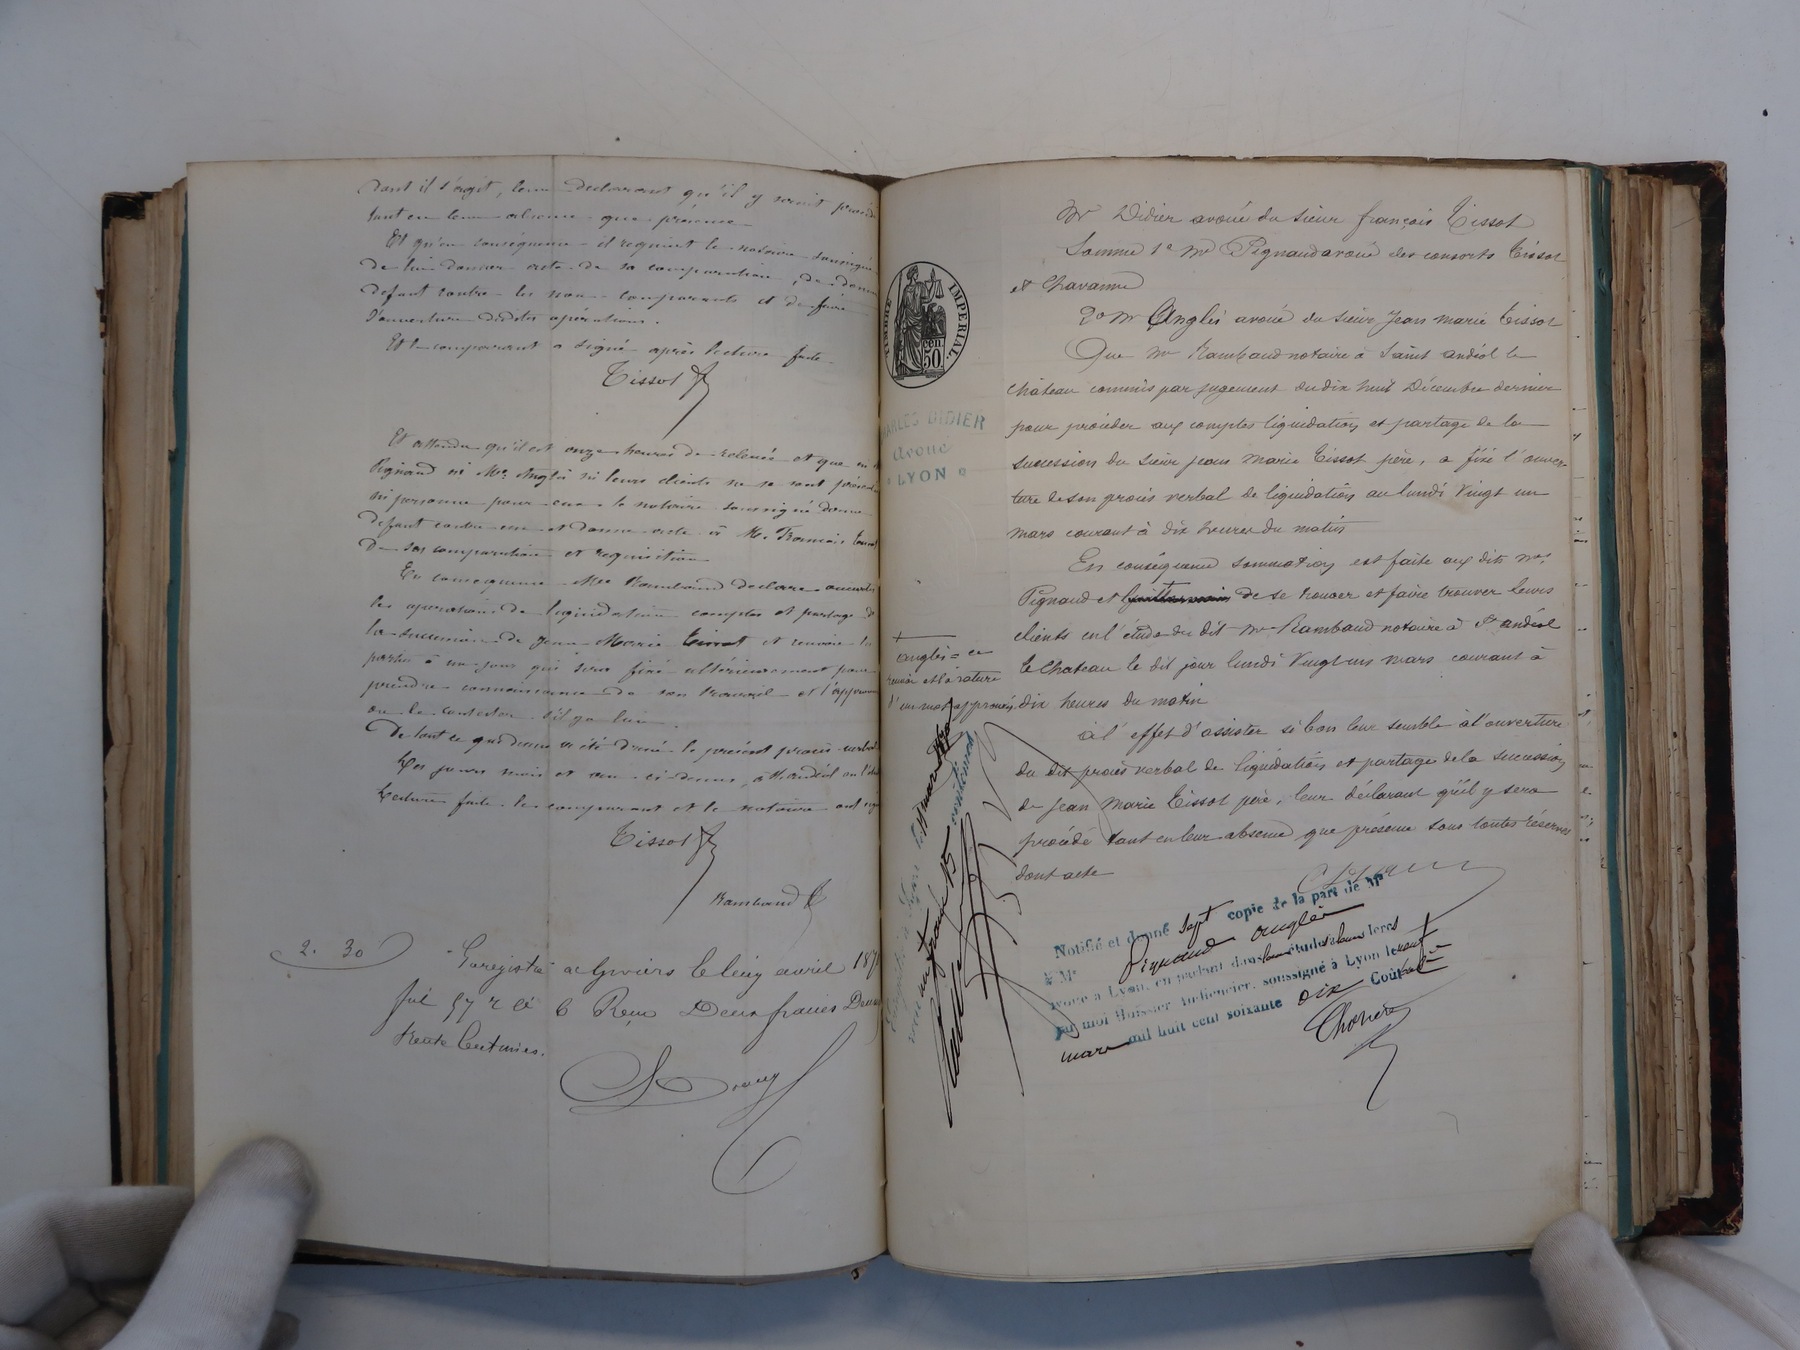 dont il s'agit, leur declarant qu'il y serait procédé
tant en leur absence que présence
Et qu'en conséquence il requiert le notaire soussigné
de lui donner acte de sa comparution, de donner
defaut contre les non comparants et de faire
l'ouverture desdites opérations.
Et le comparant a signé après lecture faite.
Tissot
Et attendu qu'il est onze heures de relevée et que
Pignaud ni Me Anglès ni leurs clients ne se sont présentés
ni personne pour eux le notaire soussigné donne
defaut contre eux et donne acte à Mr François Tissot
de ses comparution et requisition
En consequence Me Rambaud declare ouvertes
les operations de liquidation comptes et partage de
la succession de Jean Marie Tissot et renvoie les
parties à un jour qui sera fixé ultérieurement pour
prendre connaissance de son travail et l'approuver
ou le contester s'il y a lieu.
De tout ce que dessus a été dressé le présent procès verbal
Les jours mois et an ci-dessus, à St Andéol en l'étude
Lecture faite les comparant et le notaire ont signé
Tissot
Rambaud
2. 30
Enregistré à Givors le cinq avril 187
fol 57 r cé 6 Reçu Deux francs Decime
trente Centimes.
TIMBRE IMPERIAL
50 cen
CHARLES DIDIER
Avoué
LYON
Mr Didier avoué du sieur françois Tissot
Somme 1° Me Pignaud avoué des consorts Tissot
et Chavanne
2° Mr Anglès avoué du sieur Jean Marie Tissot
Que Mr Rambaud notaire à Saint andéol le
chateau commis par jugement du dix huit Décembre dernier
pour procéder aux comptes liquidation et partage de la
succession du sieur jean Marie Tissot père, a fixé l'ouver
ture de son procès verbal de liquidation au lundi Vingt un
mars courant à dix heures du matin
En conséquence sommation est faite aux dits Mes
Pignaud et de se trouver et faire trouver leurs
clients en l'étude du dit Me Rambaud notaire à St andéol
le Chateau le dit jour lundi Vingt un mars courant à
dix heures du matin
à l'effet d'assister si bon leur semble à l'ouverture
du dit procès verbal de liquidation et partage de la succession
de Jean Marie Tissot père, leur déclarant qu'il y sera
procédé tant en leur absence que présence sous toutes réserves
dont acte
anglès = ce
renvoi et la rature
d'un mot approuvés
Notifié et donné sept copie de la part de Me
à Me Pignaud Anglès
avoué à Lyon, en parlant dans leurs études à leurs clercs
par moi Huissier Audiencier, soussigné à Lyon le
mars mil huit cent soixante dix Coût